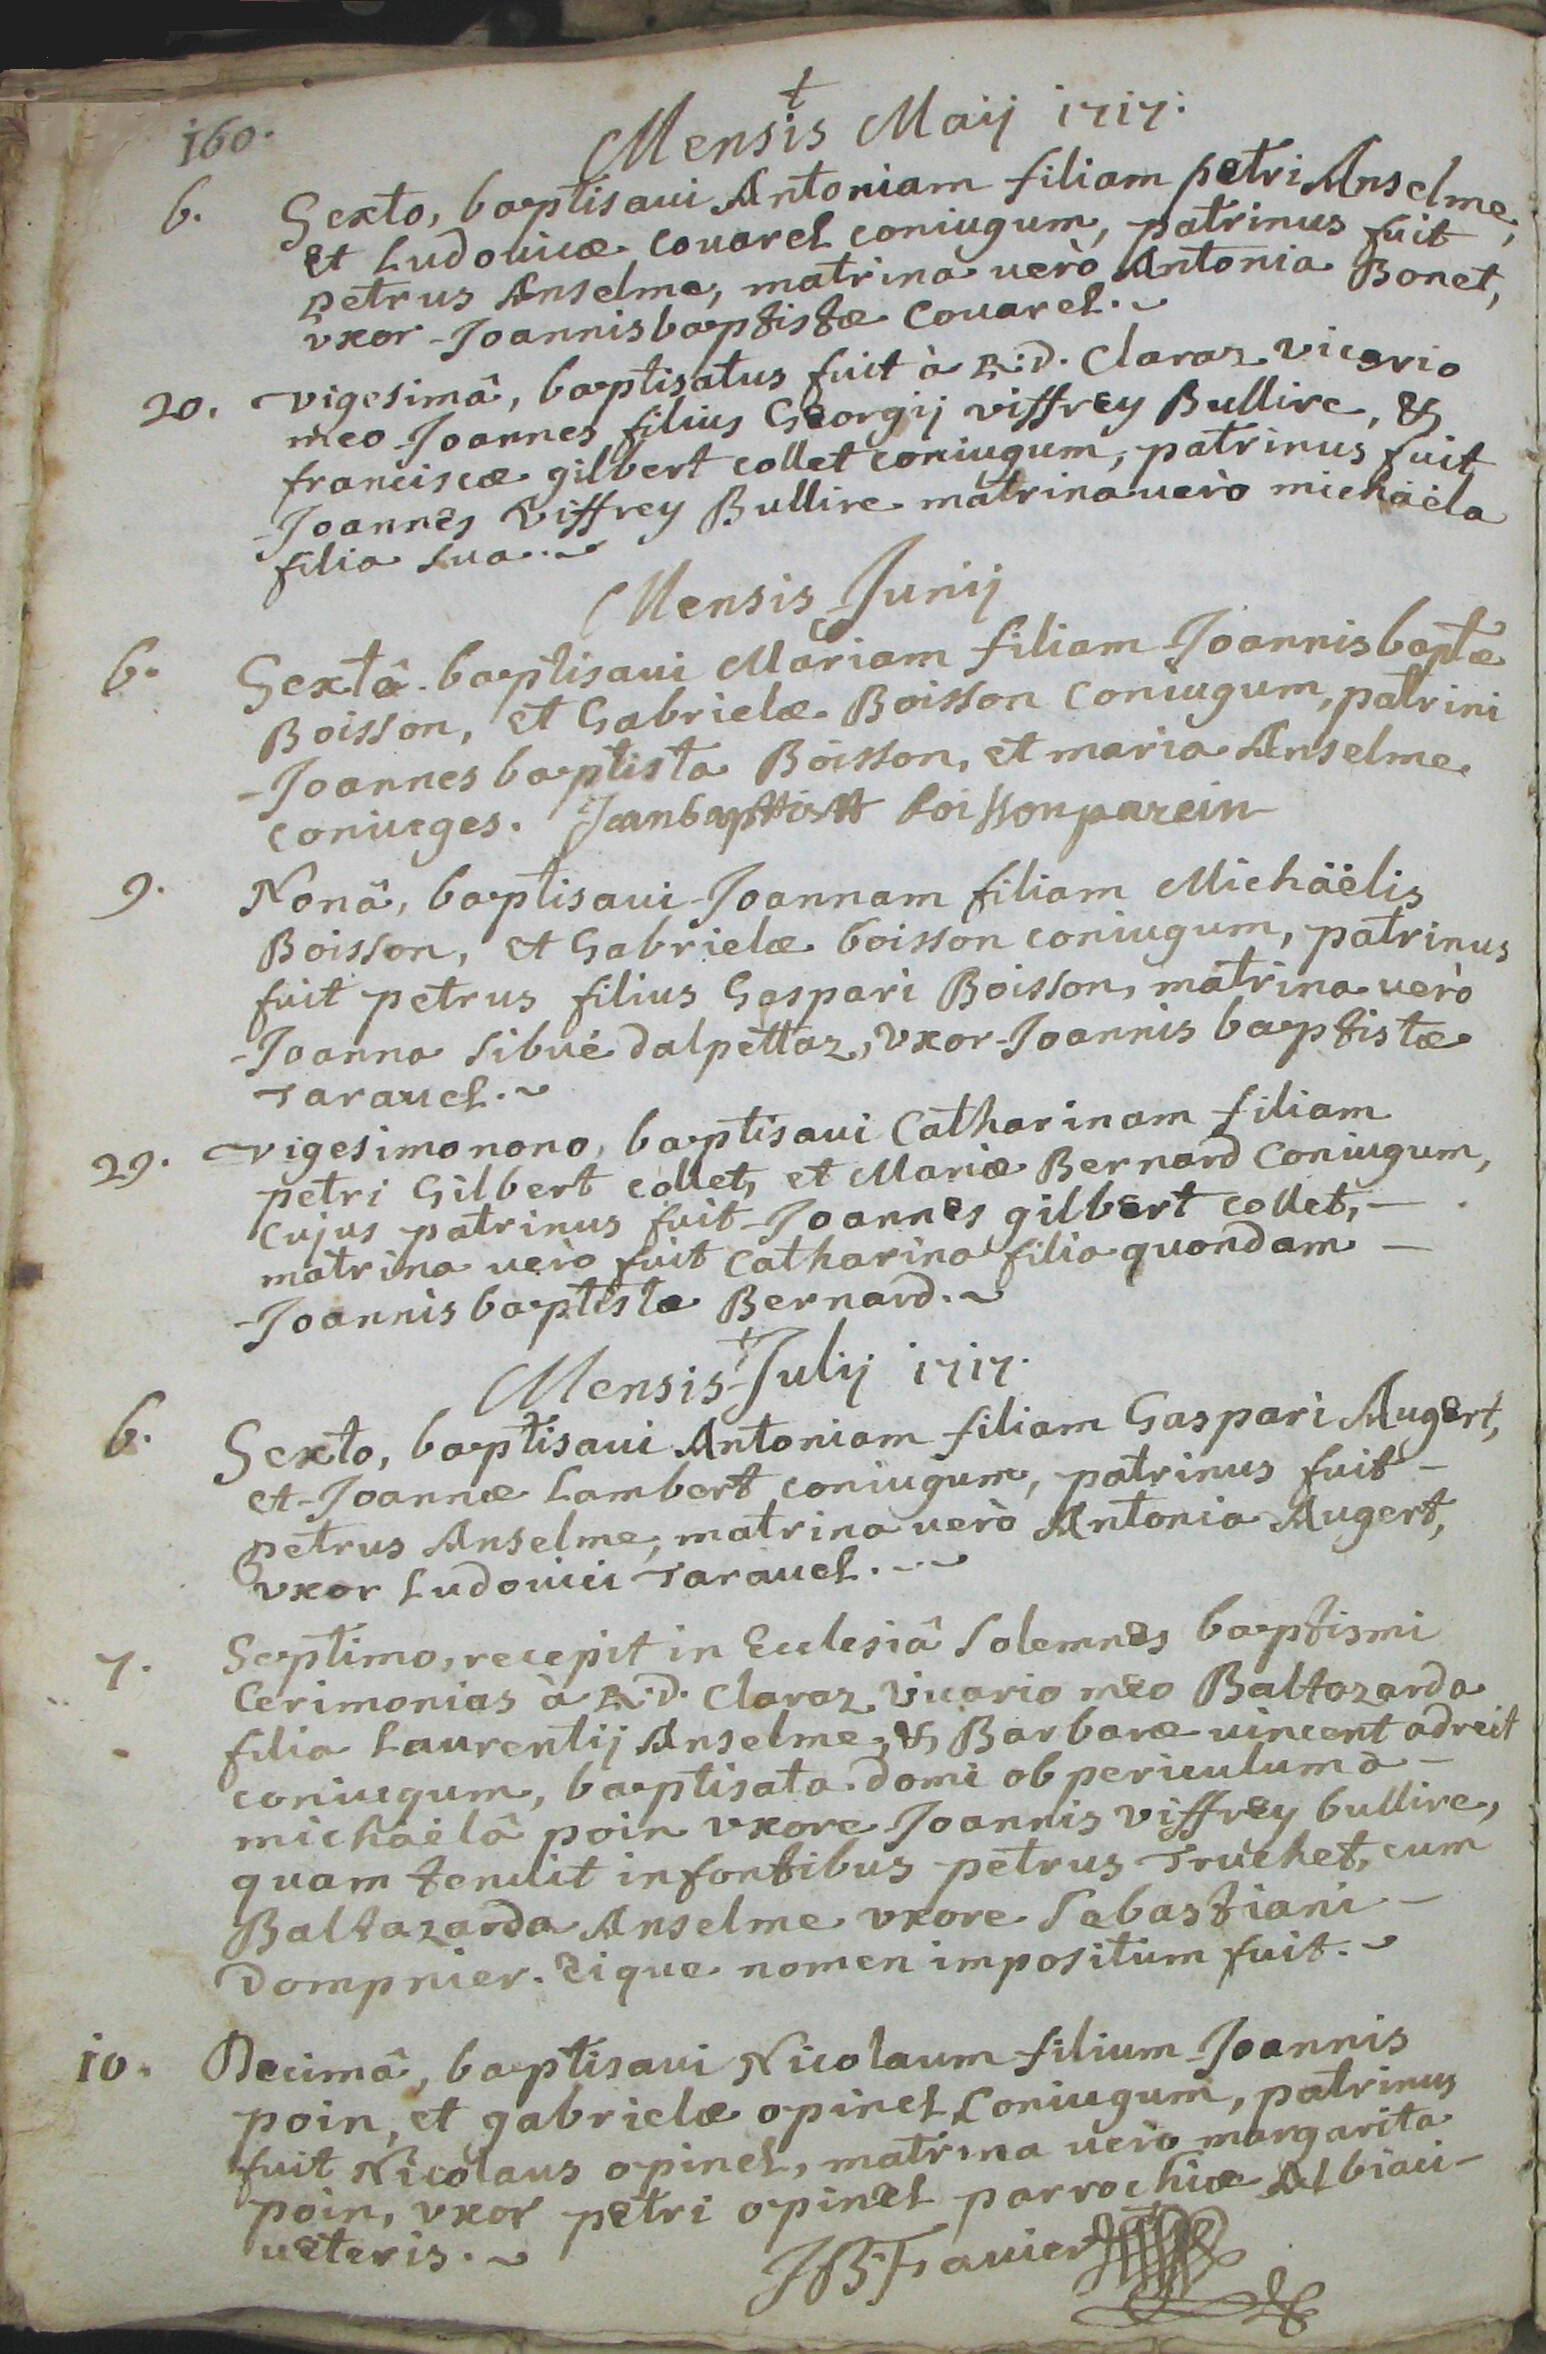 160.
†
Mensis Maij 1717:
6. Sexto, baptisaui Antoniam filiam petri Anselme,
et Ludouicæ Couarel coniugum, patrinus fuit
petrus Anselme, matrina uerò Antonia Bonet,
vxor Joannisbaptistæ Couarel.
20. vigesimâ, baptisatus fuit à R:d. Claraz vicario
meo Joannes filius Georgij viffrey Bullire, &
franciscæ gilbert collet coniugum, patrinus fuit
Joannes Viffrey Bullire matrina uerò michäela
filia sua.
Mensis Junij
6. Sextâ baptisaui Mariam filiam Joannisbaptæ
Boisson, et Gabrielæ Boisson Coniugum, patrini
Joannes baptista Boisson, et maria Anselme
coniuges. Jeanbaptist boisson parein
9. Nonâ, baptisaui Joannam filiam Michäëlis
Boisson, et Gabrielæ boisson coniugum, patrinus
fuit petrus filius Gaspari Boisson, matrina uerò
Joanna Sibué dalpettaz, Vxor Joannis baptistæ
Tarauel.
29. vigesimonono, baptisaui Catharinam filiam
petri Gilbert collet, et Mariæ Bernard Coniugum,
Cujus patrinus fuit Joannes gilbert collet,
matrina uerò fuit Catharina filia quondam
Joannis baptistæ Bernard.
†
Mensis Julij 1717.
6. Sexto, baptisaui Antoniam filiam Gaspari Augert,
et Joannæ Lambert coniugum, patrinus fuit
petrus Anselme, matrina uerò Antonia Augert,
vxor Ludouici Tarauel.
7. Septimo, recepit in Ecclesiâ Solemnes baptismi
Cerimonias à R.d. Claraz Vicario meo Baltazarda
filia Laurentij Anselme, & Barbaræ uincent adreit
coniugum, baptisata domi ob periculum à
michäëlâ poin vxore Joannis viffrey bullire,
quam tenuit infontibus petrus Truchet, cum
Baltazarda Anselme vxore Sebastiani
Dompnier. Eique nomen impositum fuit.
10. Decimâ, baptisaui Nicolaum filium Joannis
poin, et gabrielæ opinel Coniugum, patrinus
fuit Nicolaus opinel, matrina uerò margarita
poin, vxor petri opinel parrochiæ Albiaci
ueteris.
JB: Trauier